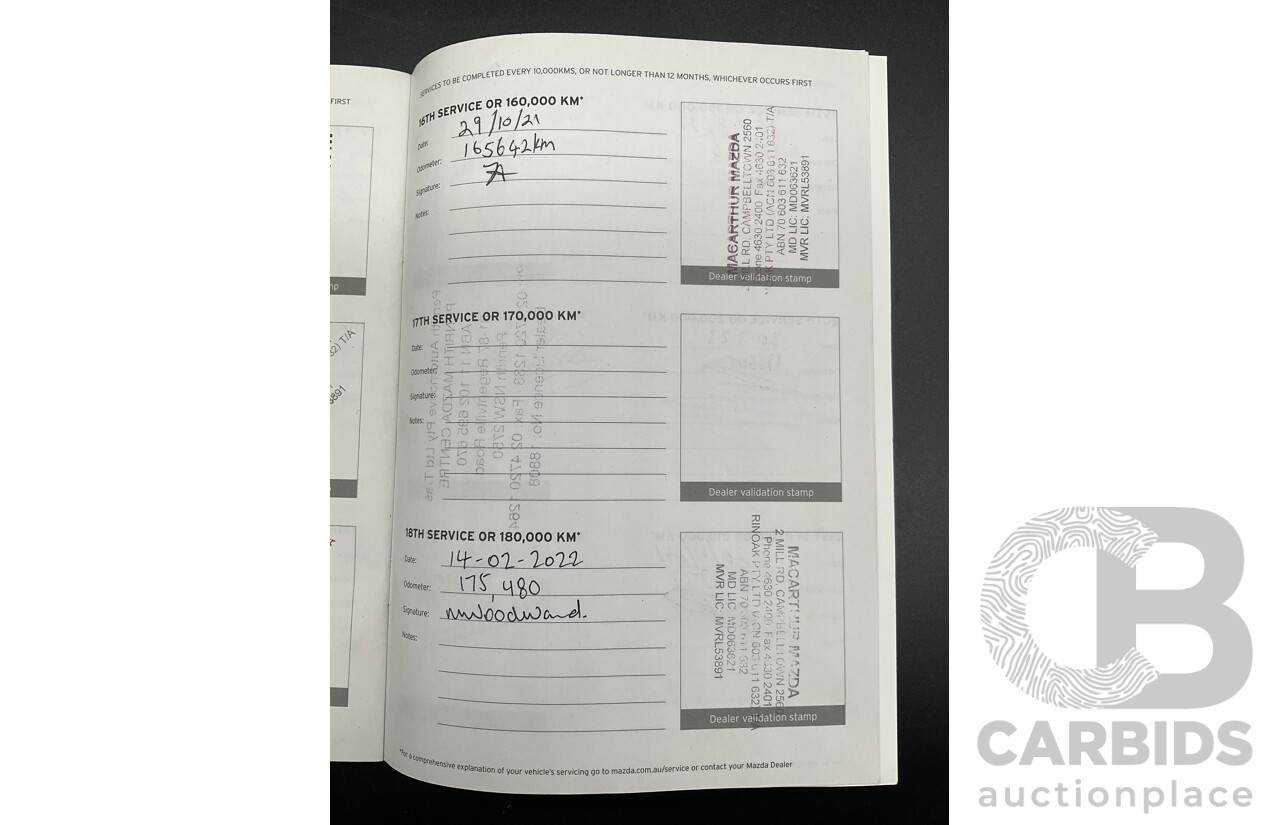 SERVICES TO BE COMPLETED EVERY 10,000KMS, OR NOT LONGER THAN 12 MONTHS, WHICHEVER OCCURS FIRST
FIRST
16TH SERVICE OR 160,000 KM*
Date: 29/10/21
Odometer: 165642km
Signature:
Notes:
MACARTHUR MAZDA
MILL RD, CAMPBELLTOWN 2560
Phone 4630 2400 Fax 4630 2401
PTY LTD (ACN 603 611 632) T/A
ABN 70 603 611 632
MD LIC: MD063621
MVR LIC: MVRL53891
Dealer validation stamp
17TH SERVICE OR 170,000 KM*
Date:
Odometer:
Signature:
Notes:
Dealer validation stamp
18TH SERVICE OR 180,000 KM*
Date: 14-02-2022
Odometer: 175,480
Signature: nwoodward.
Notes:
MACARTHUR MAZDA
2 MILL RD, CAMPBELLTOWN 2560
Phone 4630 2400 Fax 4630 2401
RINOAK PTY LTD (ACN 603 611 632)
ABN 70 603 611 632
MD LIC: MD063621
MVR LIC: MVRL53891
Dealer validation stamp
*For a comprehensive explanation of your vehicle's servicing go to mazda.com.au/service or contact your Mazda Dealer
CARBIDS
auctionplace